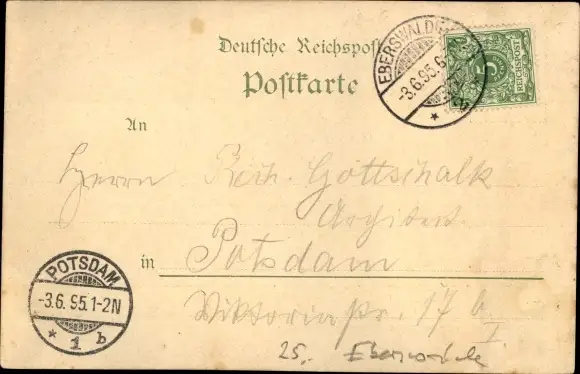 Deutsche Reichspost
Postkarte
EBERSWALDE
-3.6.95.6-
* b
5
REICHSPOST
An
Herrn Rich. Gottschalk
Architect.
in Potsdam
Viktoriastr. 17 b
I
POTSDAM
-3.6.95.1-2N
* 1 b
25.- Eberswalde